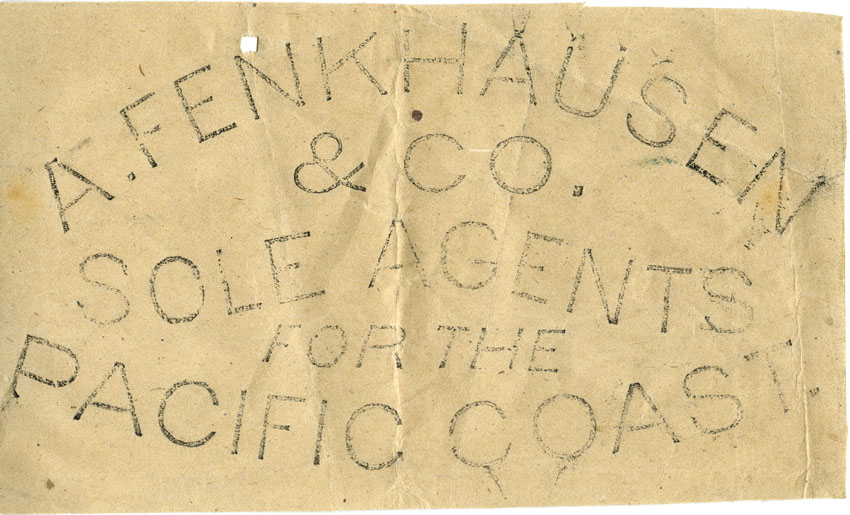 A. FENKHAUSEN
& CO.
SOLE AGENTS
FOR THE
PACIFIC COAST.